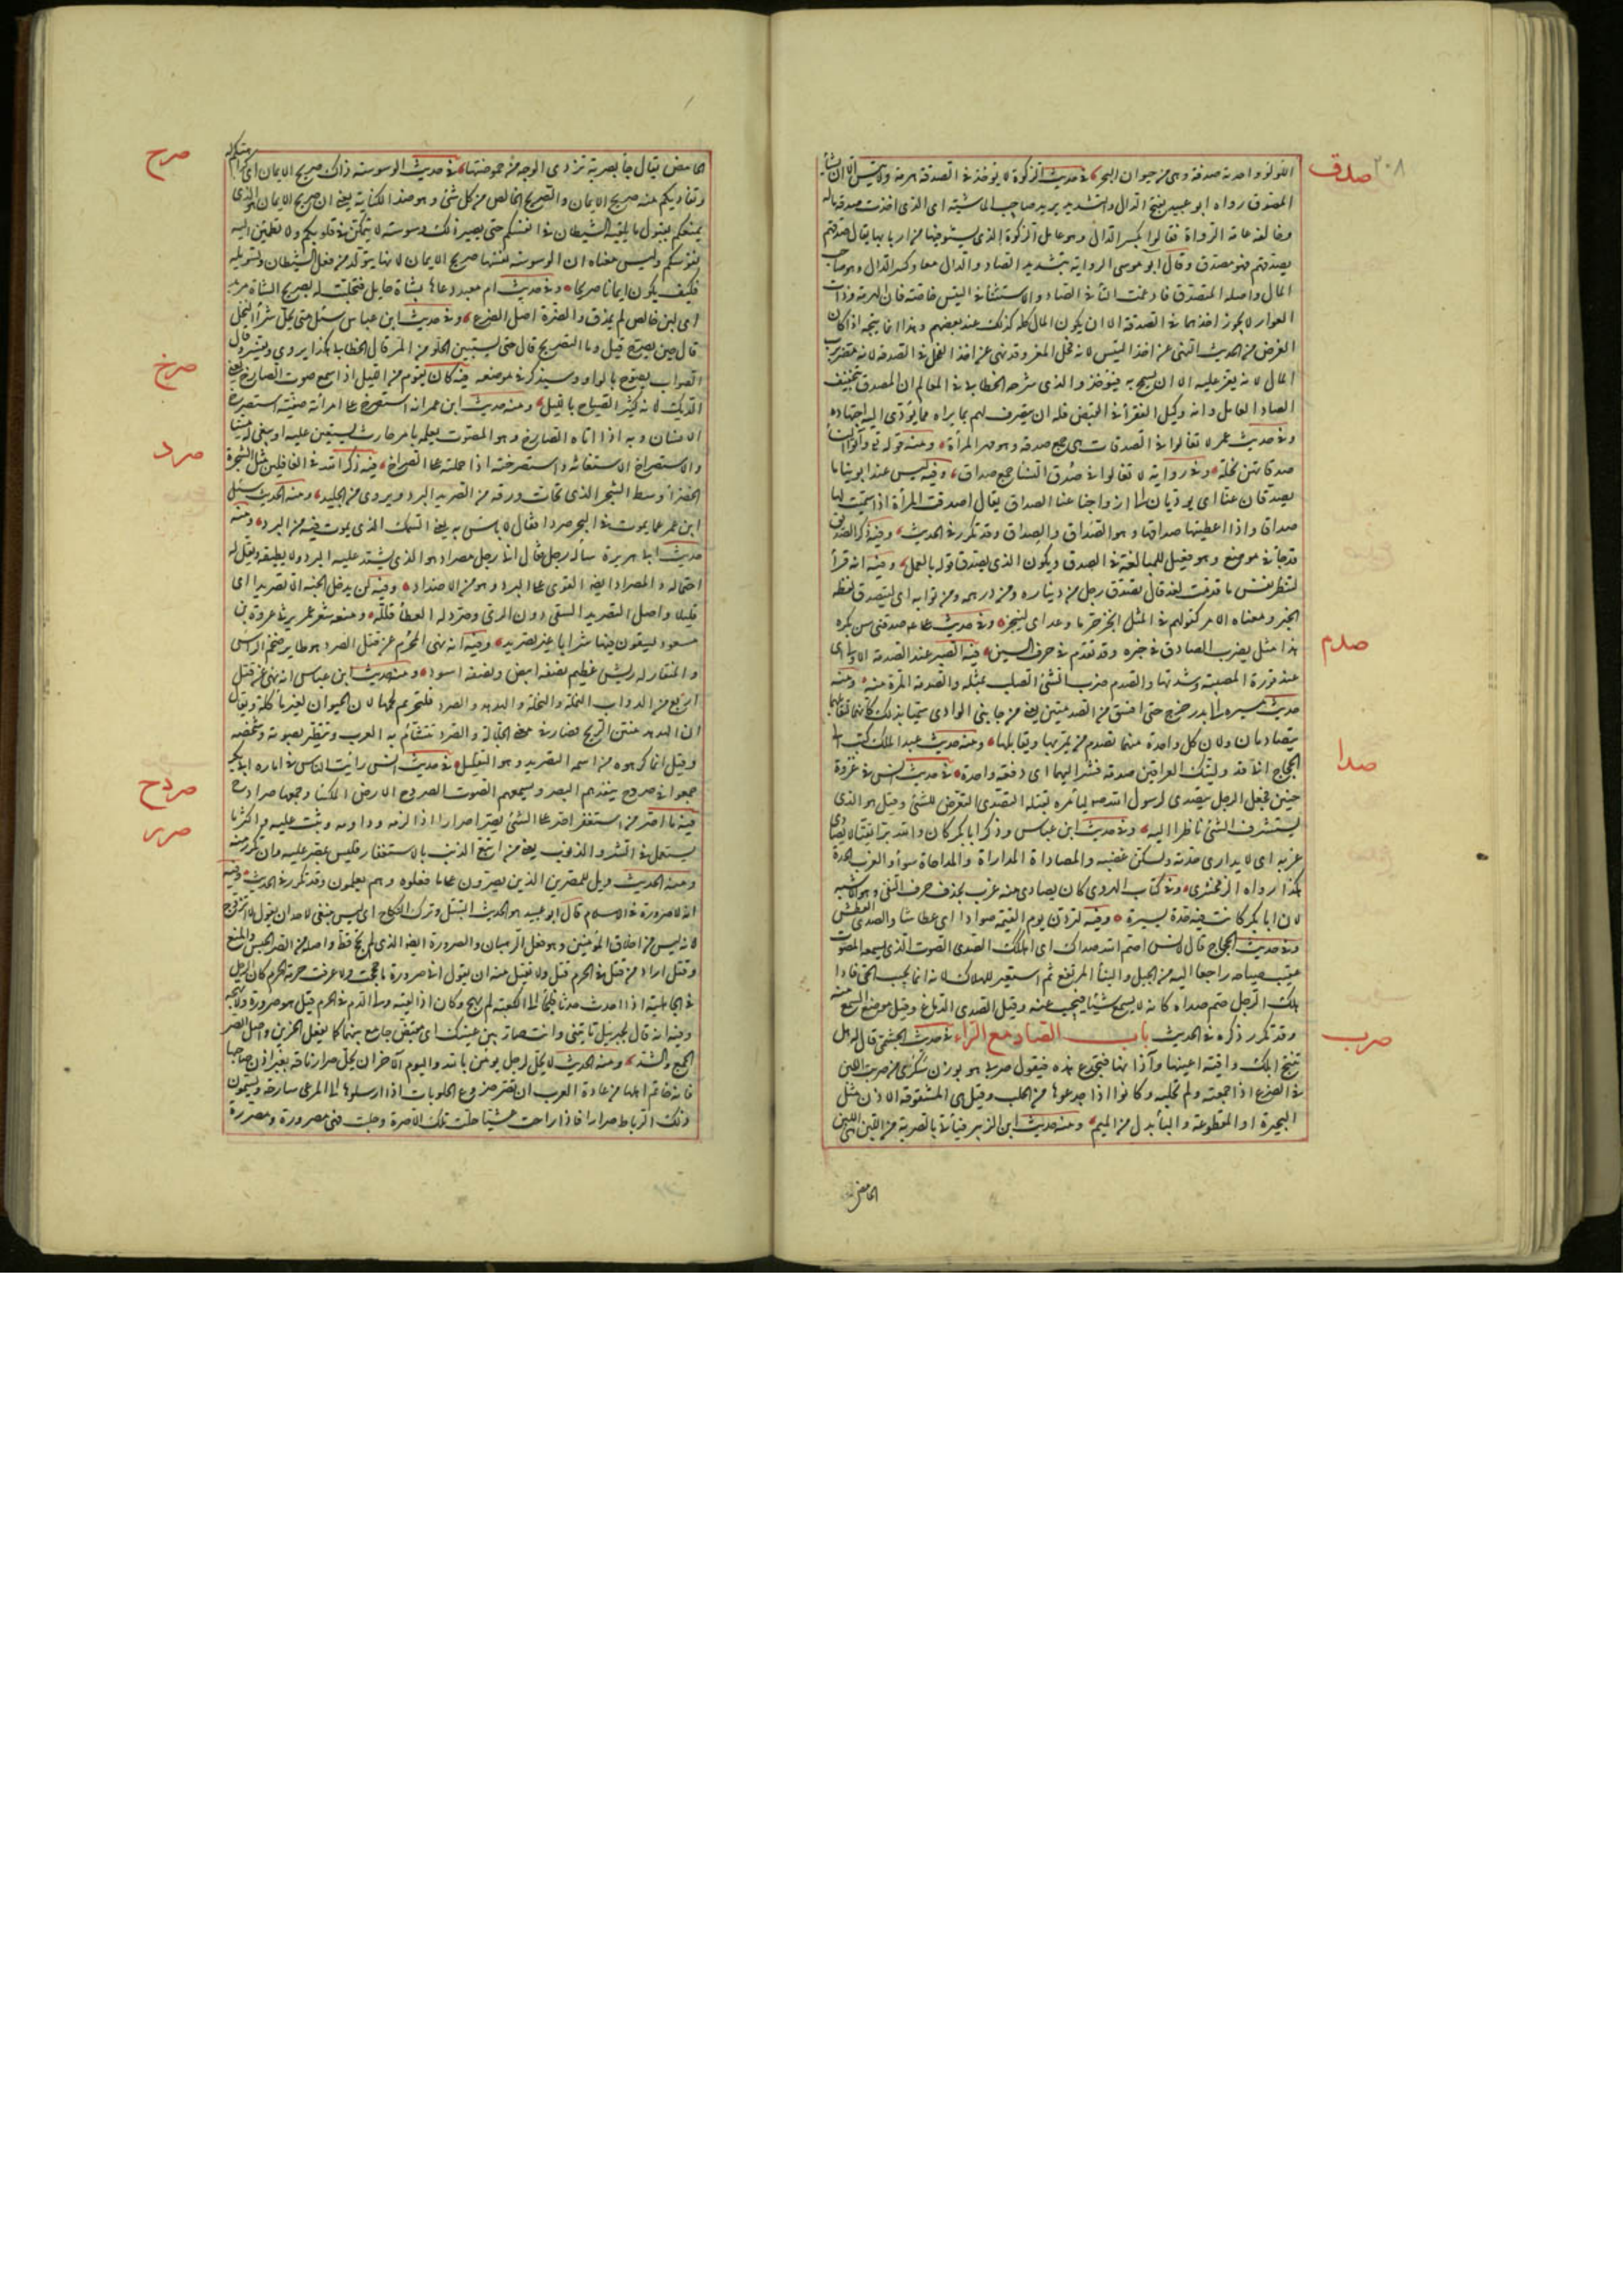 ٢٠٨
صدق
اللؤلؤ واحدته صدفة وهى من حيوان البحر في حديث الزكوة لا يوخذ في الصدقة هرمة ولا تيس الا ان يشأ
المصدق رواه ابو عبيد بفتح الدال والتشديد يريد صاحب الماشية اى الذى اخذت صدقة ماله
وخالفه عامة الرواة فقالوا بكسر الدال وهو عامل الزكوة الذى يستوفيها من اربابها يقال صدقهم
يصدقهم فهو مصدق وقال ابو موسى الرواية بتشديد الصاد والدال معا وكسر الدال وهو صاحب
المال واصله المتصدق فادغمت التأ في الصاد والاستثنأ في التيس خاصة فان الهرمة وذات
العوار لا يجوز اخذهما في الصدقة الا ان يكون المال كله كذلك عند بعضهم وهذا انما يتجه اذا كان
الغرض من الحديث النهى عن اخذ التيس لانه فحل المعز وقد نهى عن اخذ الفحل في الصدقة لانه مضر برب
المال لانه يعز عليه الا ان يسمح به فيوخذ والذى شرحه الخطابى في المعالم ان المصدق بتخفيف
الصاد العامل وانه وكيل الفقرأ في القبض فله ان يتصرف لهم بما يراه مما يؤدى اليه اجتهاده
وفي حديث عمر لا تغالوا في الصدقات هى جمع صدقة وهو مهر المرأة ومنه قوله تع وآتوا النسأ
صدقاتهن نحلة وفي رواية لا تغالوا في صدق النسأ جمع صداق وفيه ليس عند ابوينا ما
يصدقان عنا اى يوديان الى ازواجنا عنا الصداق يقال اصدقت المرأة اذا سميت لها
صداقا واذا اعطيتها صداقها وهو الصداق والصداق وقد تكرر في الحديث وفيه ذكر الصديق
قد جأ في غير موضع وهو فعيل للمبالغة في الصدق ويكون الذى يصدق قوله بالعمل وفيه انه قرأ
لتنظر نفس ما قدمت لغد قال تصدق رجل من ديناره ومن درهمه ومن ثوبه اى ليتصدق لفظه
الخبر ومعناه الامر كقولهم في المثل انجز حر ما وعد اى لينجز وفي حديث على صدقنى سن بكره
صدم
هذا مثل يضرب للصادق في خبره وقد تقدم في حرف السين فيه الصبر عند الصدمة الاولى اى
عند فورة المصيبة وشدتها والصدم ضرب الشئ الصلب بمثله والصدمة المرة منه ومنه
حديث مسيره الى بدر خرج حتى افتق من الصدمتين يعنى من جانبى الوادى سميا بذلك كانهما لتقابلهما
يتصادمان ولان كل واحدة منهما تصدم من يمر بها ويقابلها ومنه حديث عبد الملك كتب الى
صدا
الحجاج انى قد وليتك العراقين صدمة فسر اليهما اى دفعة واحدة في حديث انس في غزوة
حنين فجعل الرجل يتصدى لرسول الله ص ليأمره بقتله التصدى التعرض للشئ وقيل هو الذى
يستشرف الشئ ناظرا اليه وفي حديث ابن عباس وذكر ابا بكر كان والله برا تقيا لا يصادى
غربه اى لا يدارى حدته ويسكن غضبه والمصاداة المداراة والمداجاة سوأ والغرب الحدة
هكذا رواه الزمخشرى وفي كتاب الهروى كان يصادى منه غرب بحذف حرف النفى وهو الاشبه
لان ابا بكر كانت فيه حدة يسيرة وفيه لتردن يوم القيمة صوادا اى عطاشا والصدى العطش
وفي حديث الحجاج قال لانس اصم الله صداك اى اهلكك الصدى الصوت الذى يسمعه المصوت
عقيب صياحه راجعا اليه من الجبل والبنأ المرتفع ثم استعير للهلاك لانه انما يجيب الحى فاذا
هلك الرجل صم صداه كانه لا يسمع شيئا فيجيب عنه وقيل الصدى الدماغ وقيل موضع السمع منه
صرب
وقد تكرر ذكره في الحديث باب الصاد مع الرأء في حديث الجشمى قال له هل
تنتج ابلك وافية اعينها وآذانها فتجدع هذه فتقول صربى هو بوزن سكرى من صربت اللبن
في الضرع اذا جمعته ولم تحلبه وكانوا اذا جدعوها من الحلب وقيل هى المشقوقة الاذن مثل
البحيرة او المقطوعة والبأ بدل من الميم ومنه حديث ابن الزبير فيأتي بالصربة من اللبن هى اللبن
الحامض
صرح
الحامض يقال جأ بصربة تزوى الوجه من حموضتها في حديث الوسوسة ذاك صريح الايمان اى كراهتكم له
وتفاديكم منه صريح الايمان والصريح الخالص من كل شئ وهو ضد الكناية يعنى ان صريح الايمان هو الذى
يمنعكم من قبول ما يلقيه الشيطان في انفسكم حتى يصير ذلك وسوسة لا يتمكن في قلوبكم ولا تطمئن اليه
نفوسكم وليس معناه ان الوسوسة نفسها صريح الايمان لانها يتولد من فعل الشيطان وتسويله
فكيف يكون ايمانا صريحا وفي حديث ام معبد دعاها بشاة حايل فتحلبت له بصريح الشاة مزبد
اى لبن خالص لم يمذق والضرة اصل الضرع وفي حديث ابن عباس سئل متى يحل شرأ النخل
قال حين يصرح قيل وما التصريح قال حتى يستبين الحلو من المر قال الخطابى هكذا يروى ويفسر وقال
صرخ
الصواب يصوح بالواو وسيذكر في موضعه فيه كان يقوم من الليل اذا سمع صوت الصارخ يعنى
الديك لانه كثير الصياح بالليل ومنه حديث ابن عمر انه استصرخ على امرأته صفية استصرخ
الانسان وبه اذا اتاه الصارخ وهو المصوت يعلمه بامر حادث يستعين عليه او ينعى له ميتا
صرد
والاستصراخ الاستغاثة واستصرخته اذا حملته على الصراخ فيه ذاكر الله في الغافلين مثل الشجرة
الخضرأ وسط الشجر الذى تحات ورقه من الصريد البرد ويروى من الجليد ومنه الحديث سئل
ابن عمر عما يموت في البحر صردا فقال لا باس به يعنى السمك الذى يموت فيه من البرد ومنه
حديث ابى هريرة سأله رجل فقال انى رجل مصراد هو الذى يشتد عليه البرد ولا يطيقه ويقل له
احتماله والمصراد ايضا القوى على البرد وهو من الاضداد وفيه لن يدخل الجنة الا تصريدا اى
قليلا واصل التصريد السقى دون الرى وصرد له العطأ قلله ومنه شعر عمر يرثى عروة بن
مسعود يسقون فيها شرابا غير تصريد وفيه انه نهى المحرم عن قتل الصرد هو طاير ضخم الراس
والمنقار له ريش عظيم نصفه ابيض ونصفه اسود ومنه حديث ابن عباس انه نهى عن قتل
اربع من الدواب النملة والنحلة والهدهد والصرد فلتحريم لحمها لان الحيوان لغير ماكلة ويقال
ان الهدهد منتن الريح فصار في معنى الجلالة والصرد تتشأم به العرب وتتطير بصوته وشخصه
وقيل انما كرهوه من اسمه التصريد وهو التقليل في حديث انس رايت الناس في امارة ابى بكر
صردح
جمعوا في صردح ينفذهم البصر ويسمعهم الصوت الصردح الارض الملسأ وجمعها صرادح
صرر
فيه ما اصر من استغفر اصر على الشئ يصر اصرارا اذا لزمه وداومه وثبت عليه واكثر ما
يستعمل في الشر والذنوب يعنى من اتبع الذنب بالاستغفار فليس بمصر عليه وان تكرر منه
ومنه الحديث ويل للمصرين الذين يصرون على ما فعلوه وهم يعلمون وقد تكرر في الحديث وفيه
انه لا صرورة في الاسلام قال ابو عبيد هو في الحديث التبتل وترك النكاح اى ليس ينبغى لاحد ان يقول لا اتزوج
لانه ليس من اخلاق المؤمنين وهو فعل الرهبان والصرورة ايضا الذى لم يحج قط واصله من الصر الحبس والمنع
وقيل اراد من قتل في الحرم قتل ولا يقبل منه ان يقول انى صرورة ما حججت ولا عرفت حرمة الحرم كان الرجل
في الجاهلية اذا احدث حدثا فلجأ الى الكعبة لم يهج وكان اذا لقيه ولى الدم في الحرم قيل هو صرورة ولا تهجه
وفيه انه قال لجبريل تاتينى وانت صار بين عينيك اى مقبض جامع بينهما كما يفعل الحزين واصل الصر
الجمع والشد ومنه الحديث لا يحل لرجل يومن بالله واليوم الآخر ان يحل صرار ناقة بغير اذن صاحبها
فانه خاتم اهلها من عادة العرب ان تصر ضروع الحلوبات اذا ارسلوها الى المرعى سارحة ويسمون
ذلك الرباط صرارا فاذا راحت عشيا حلت تلك الاصرة وحلبت فهى مصرورة ومصررة